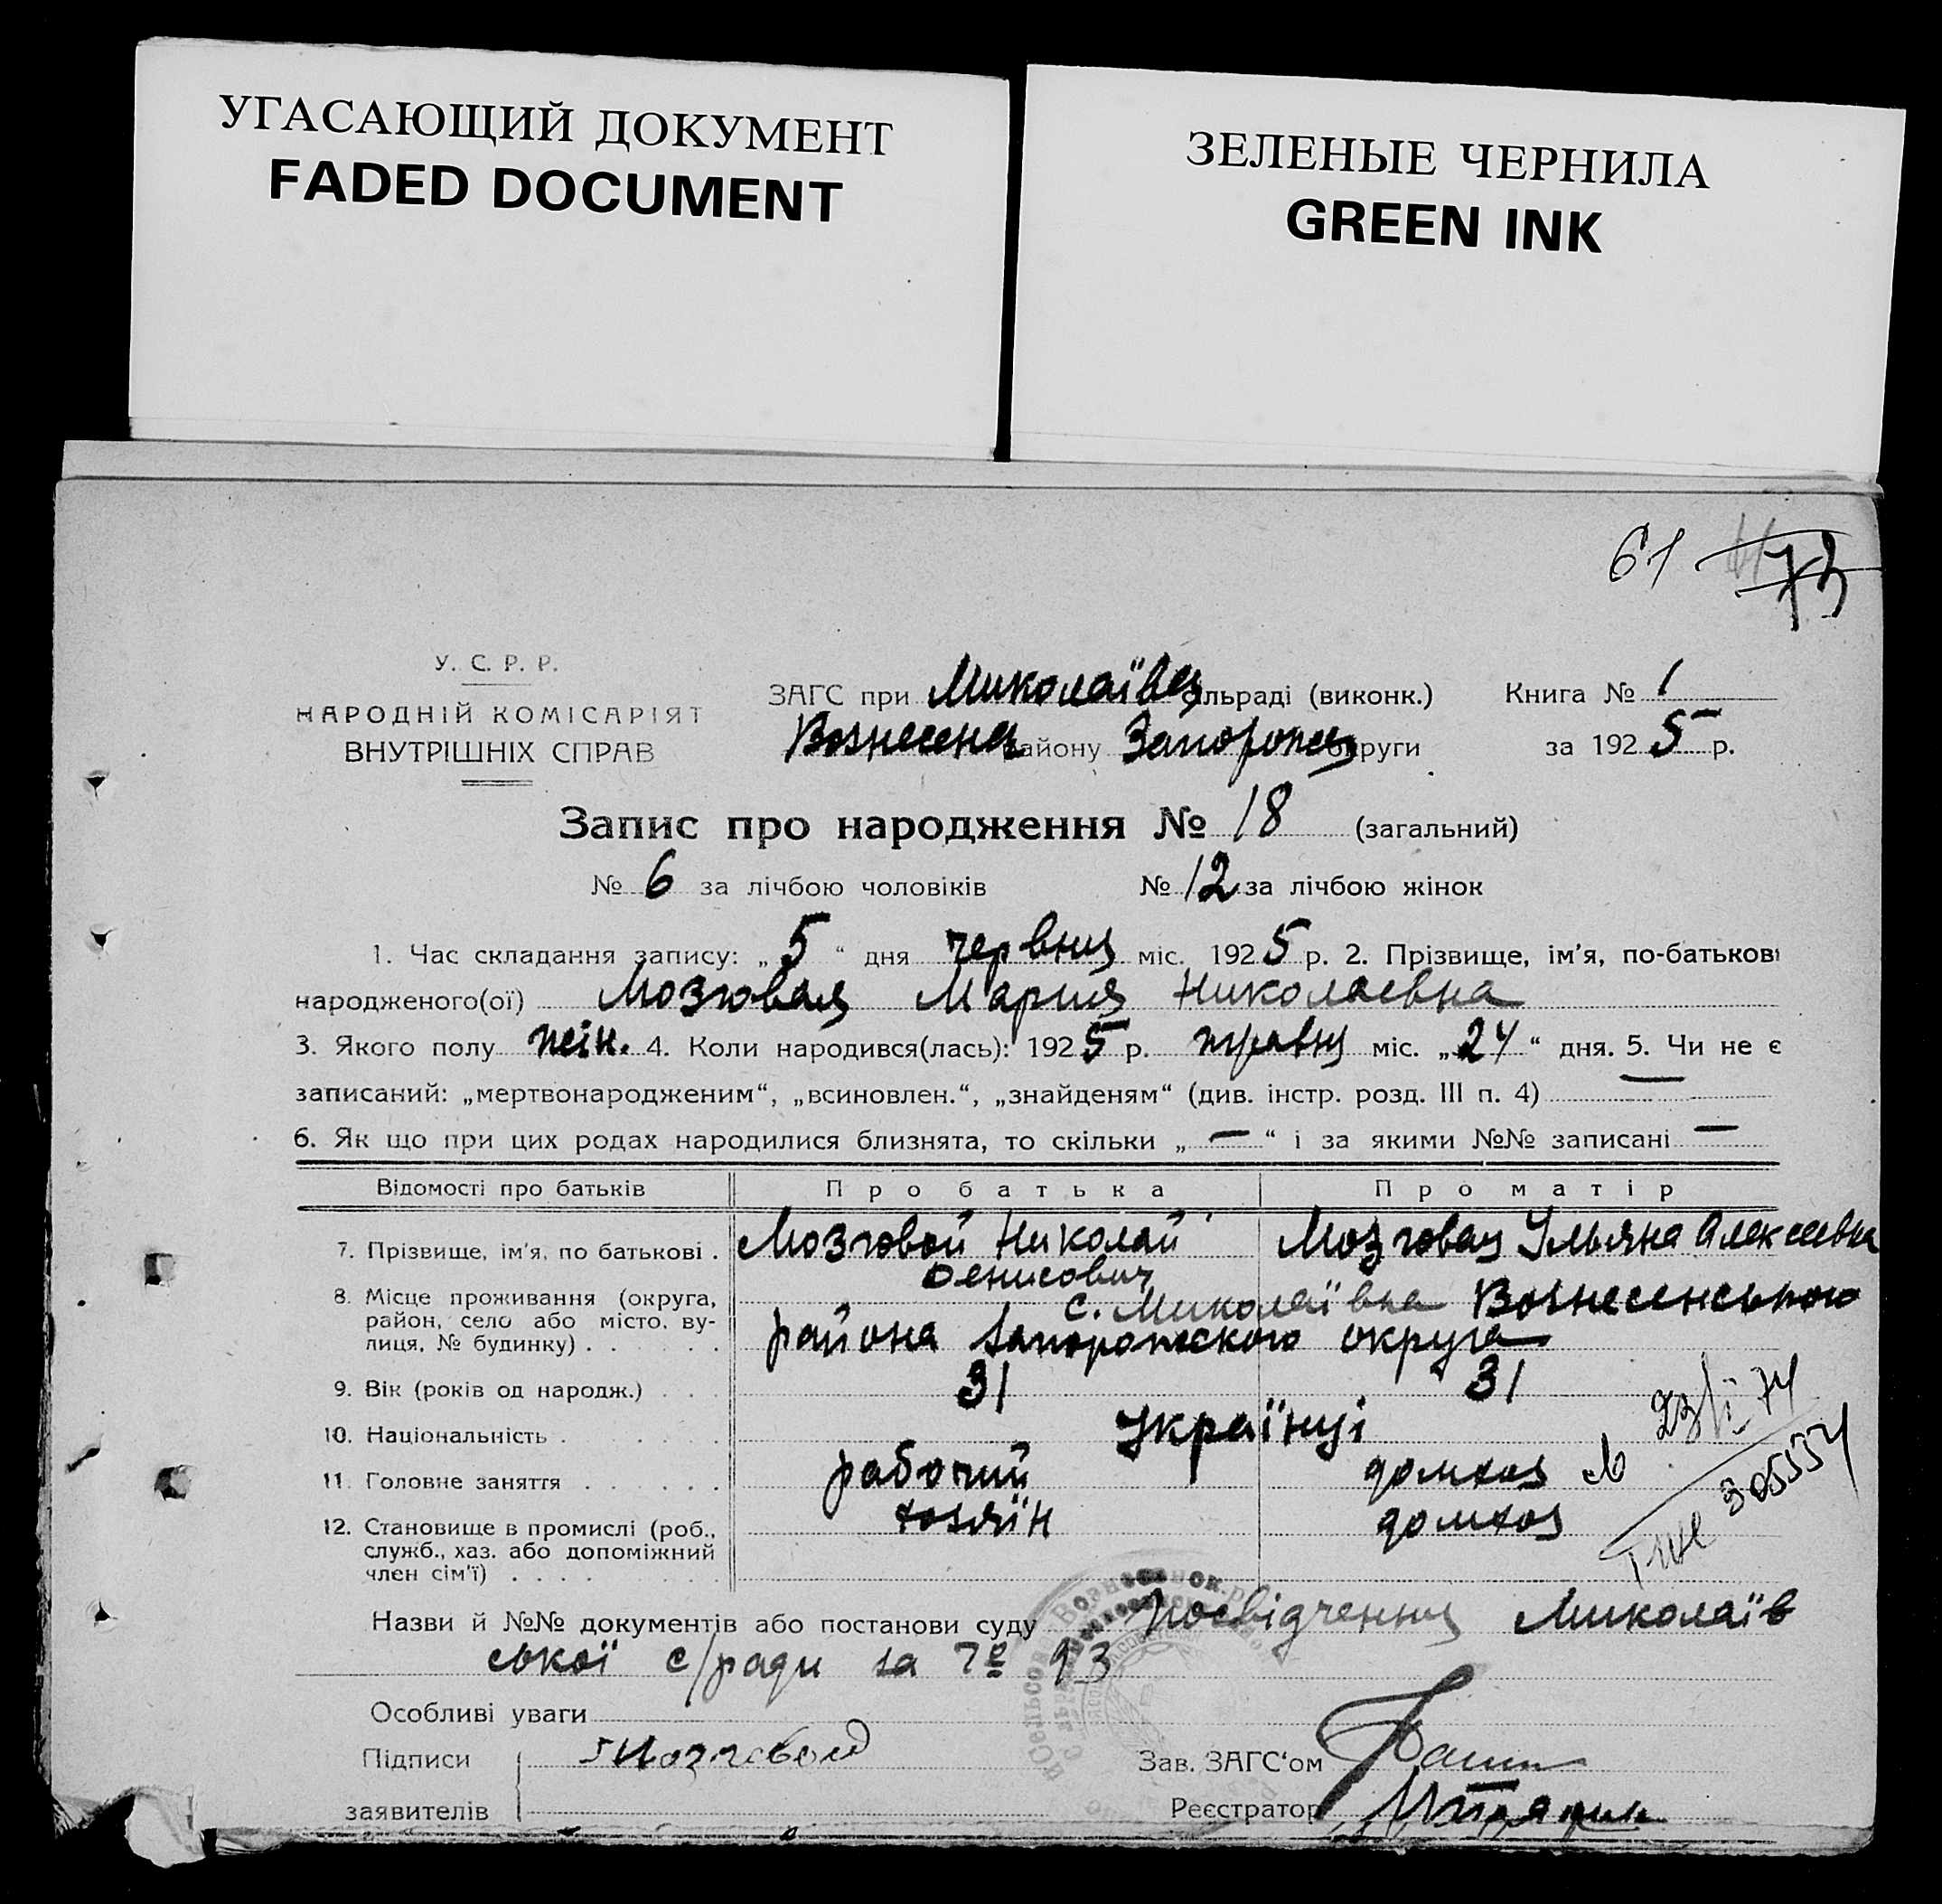 УГАСАЮЩИЙ ДОКУМЕНТ
FADED DOCUMENT
ЗЕЛЕНЫЕ ЧЕРНИЛА
GREEN INK
61 73
У. С. Р. Р.
НАРОДНІЙ КОМІСАРІЯТ
ВНУТРІШНІХ СПРАВ
ЗАГС при Миколаївск сільраді (виконк.) Книга № 1
Вознесенск району Запорожск округи за 1925 р.
Запис про народження № 18 (загальний)
№ 6 за лічбою чоловіків № 12 за лічбою жінок
1. Час складання запису: „5“ дня червня міс. 1925 р. 2. Прізвище, ім'я, по-батькові
народженого(ої) Мозговая Мария Николаевна
3. Якого полу жін. 4. Коли народився(лась): 1925 р. травня міс. „24“ дня. 5. Чи не є
записаний: „мертвонародженим“, „всиновлен.“, „знайденям“ (див. інстр. розд. III п. 4) —
6. Як що при цих родах народилися близнята, то скільки „—“ і за якими №№ записані —
Відомості про батьків Про батька Про матір
7. Прізвище, ім'я, по батькові . Мозговой Николай Денисович Мозговая Ульяна Алексеевна
8. Місце проживання (округа, район, село або місто, вулиця, № будинку) . с. Миколаївка Вознесенського
района Запорожского округа
9. Вік (років од народж.) 31 31
10. Національність . Українці
11. Головне заняття рабочий домхоз
12. Становище в промислі (роб., служб., хаз. або допоміжний член сім'ї) хозяїн домхоз
305554
Назви й №№ документів або постанови суду Посвідчення Миколаїв
ської с/ради за № 93
Особливі уваги
Підписи Мозговой Зав. ЗАГС'ом
заявителів Реєстратор